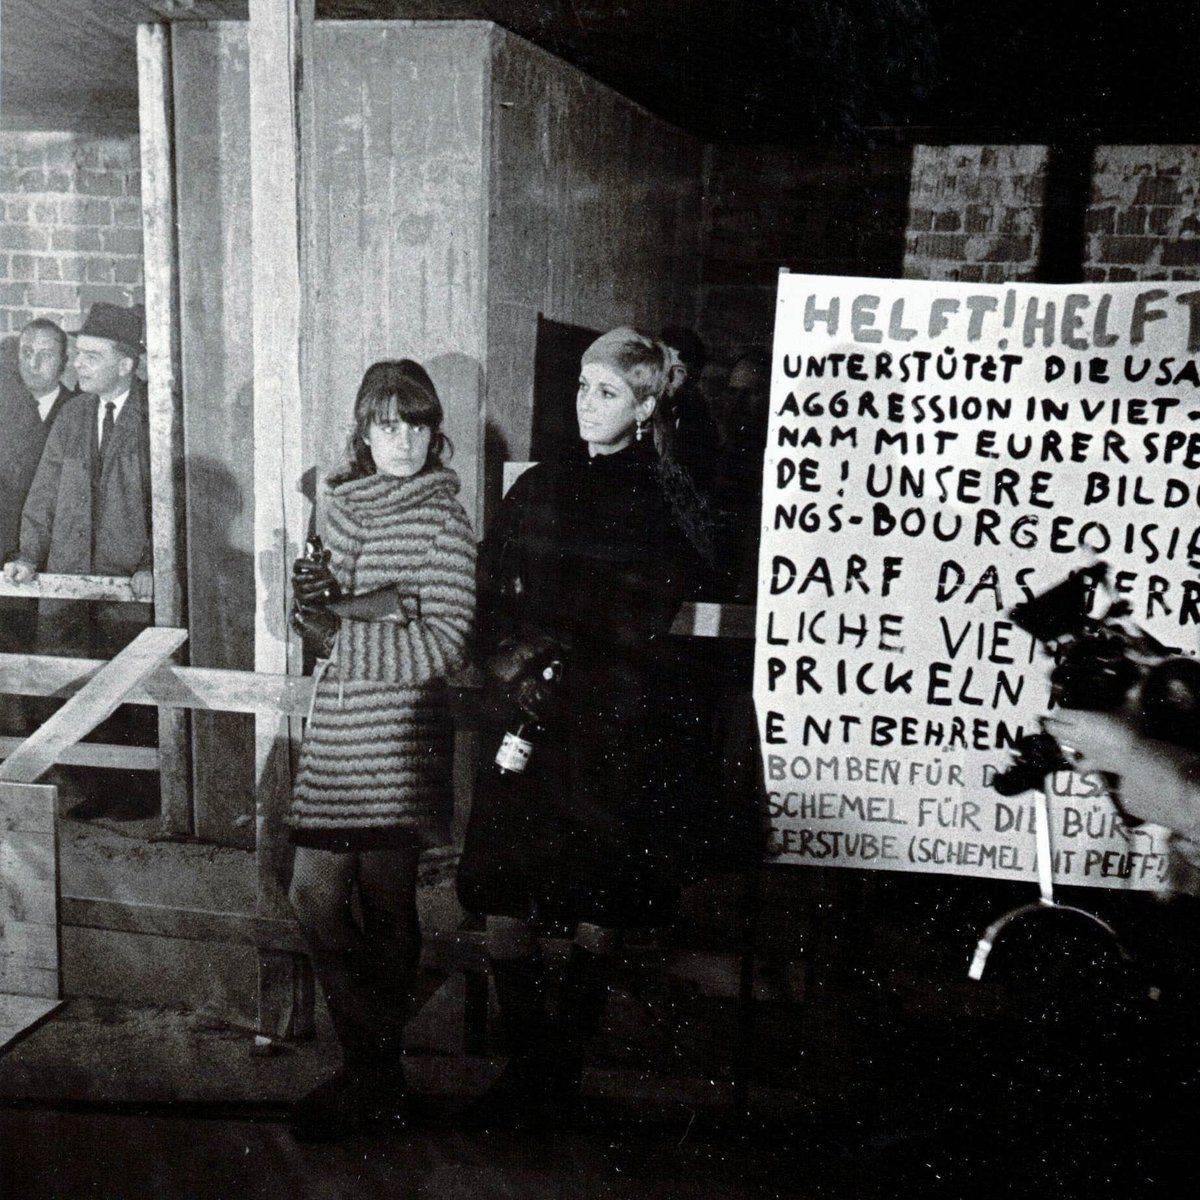 HELFT! HELFT
UNTERSTÜTZT DIE USA
AGGRESSION IN VIET-
NAM MIT EURER SPE
DE! UNSERE BILD
NGS-BOURGEOISIE
DARF DAS HERR
LICHE VIET
PRICKELN
ENTBEHREN
BOMBEN FÜR DIE USA
SCHEMEL FÜR DIE BÜR-
GERSTUBE (SCHEMEL MIT PELFF!)